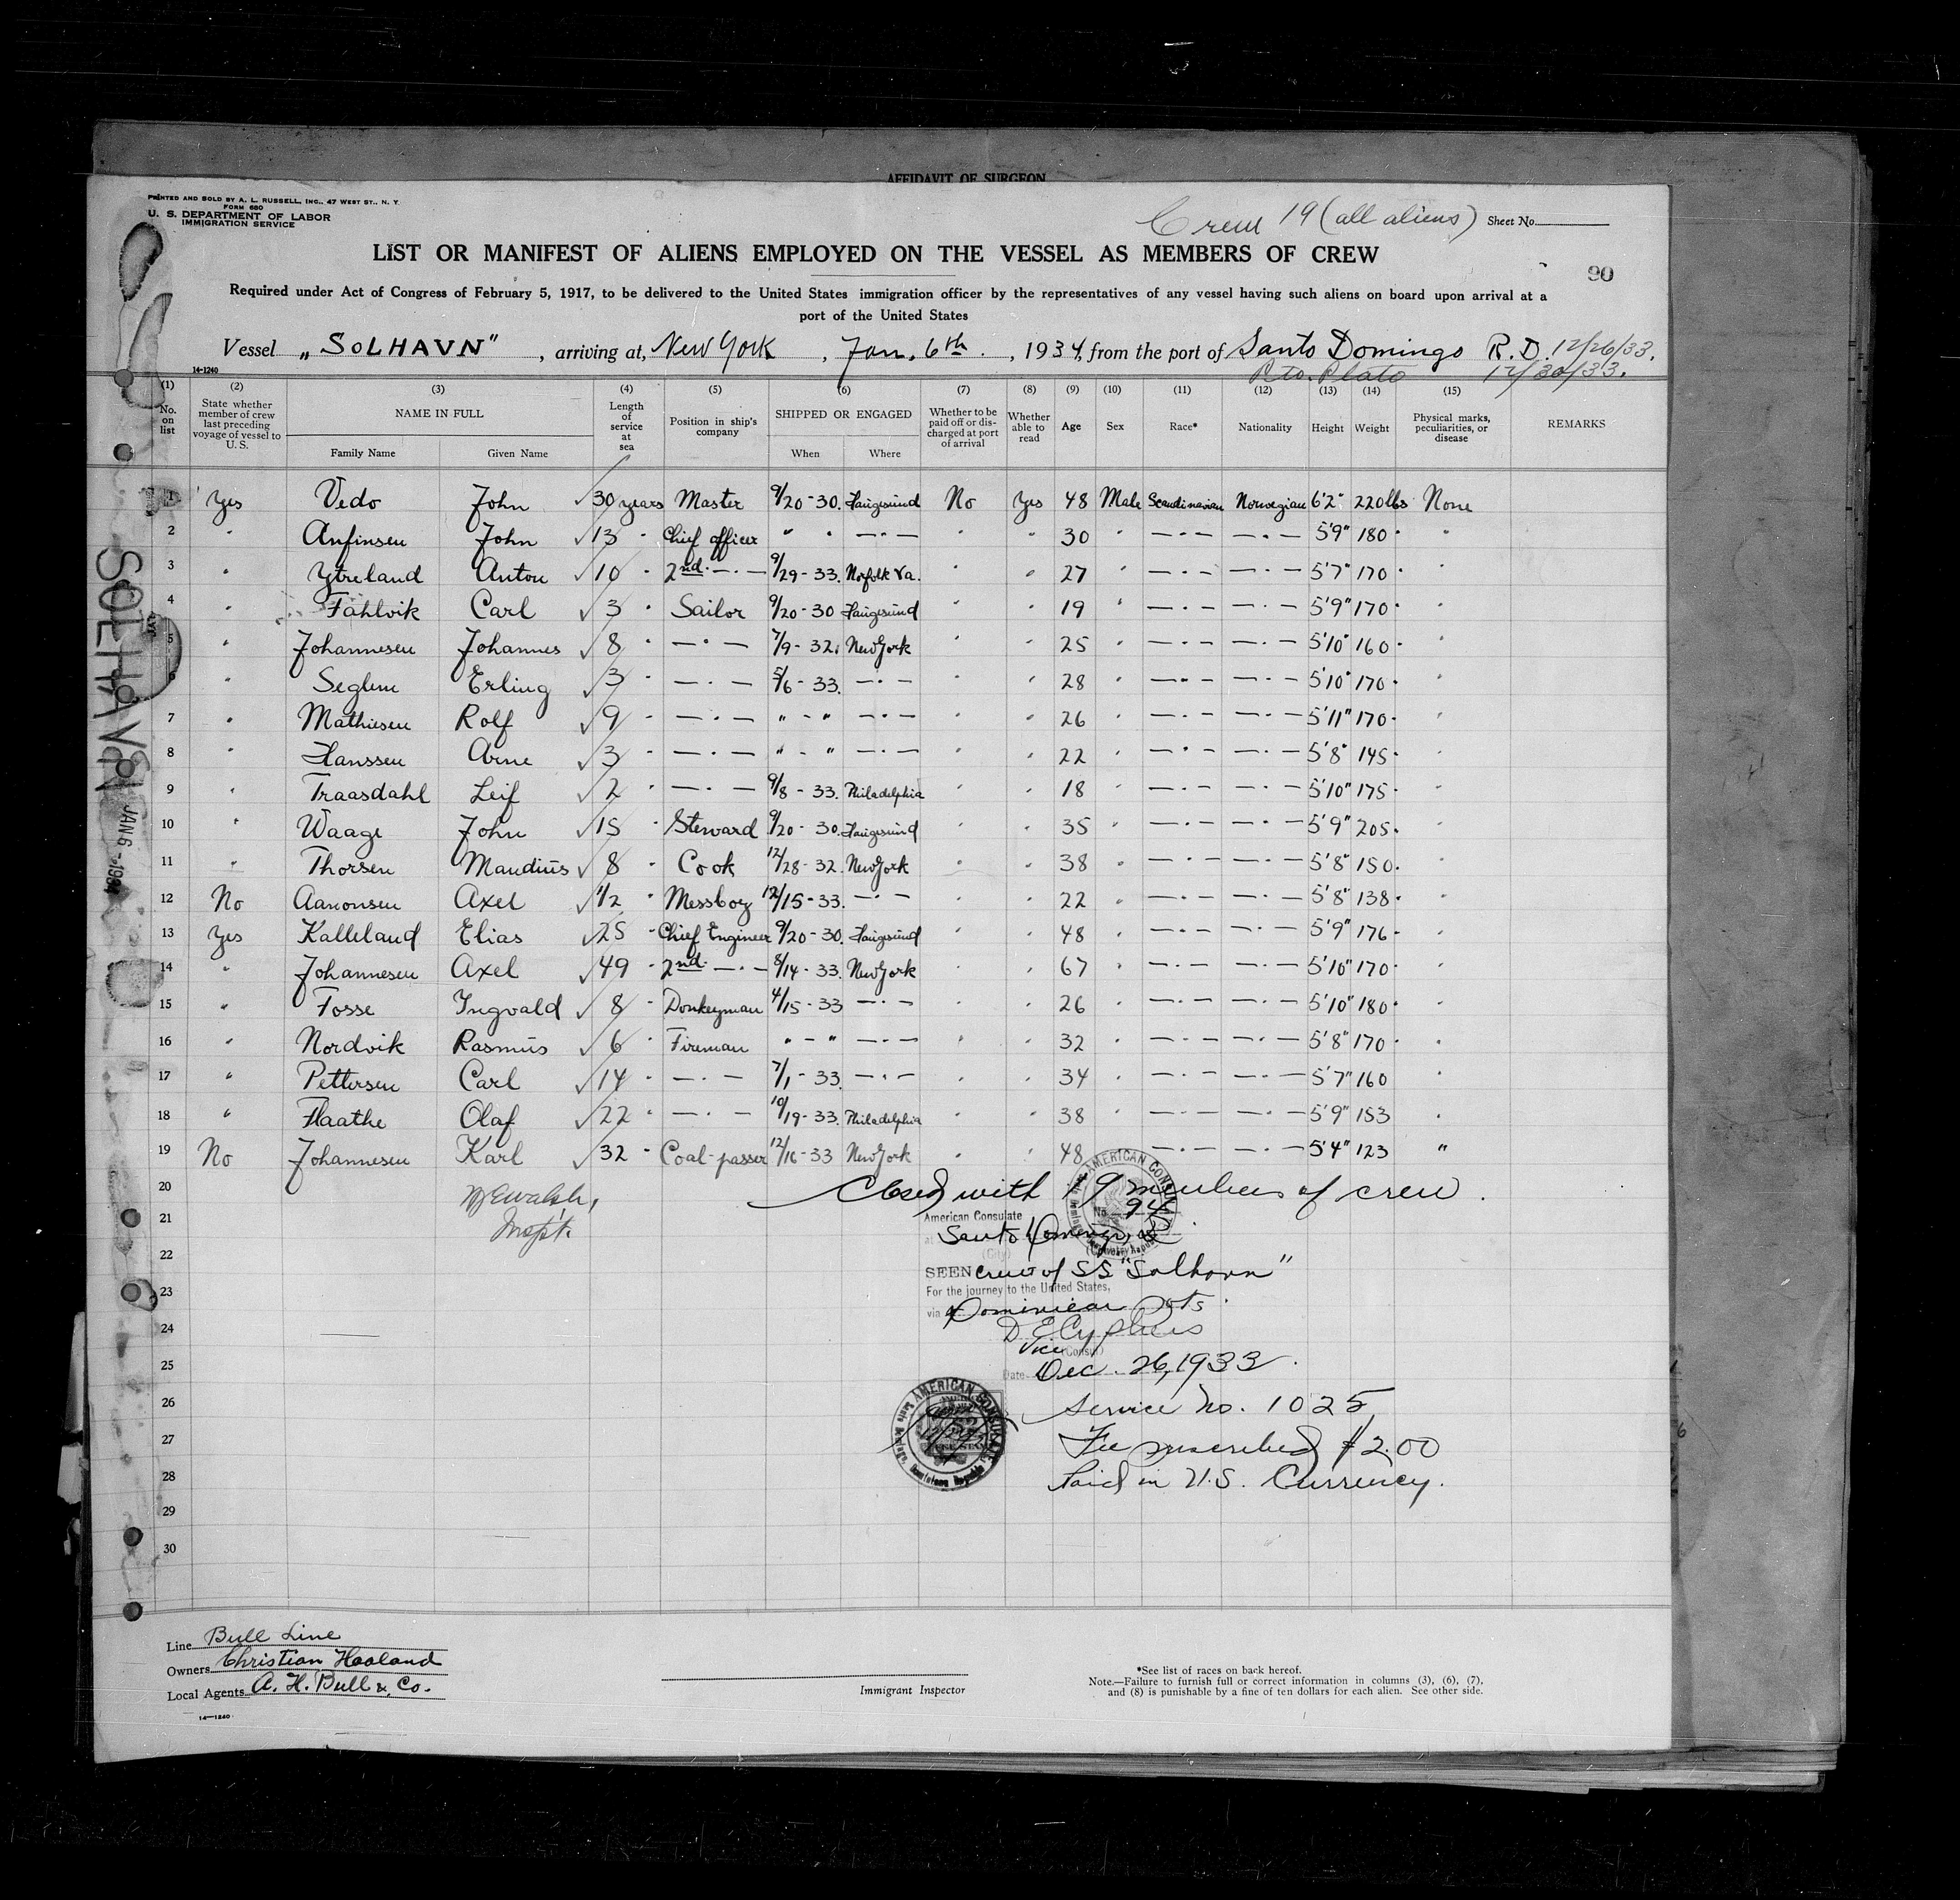 AFFIDAVIT OF SURGEON
PRINTED AND SOLD BY A. L. RUSSELL, INC., 47 WEST ST., N. Y.
FORM 680
U. S. DEPARTMENT OF LABOR
IMMIGRATION SERVICE
Crew 19 (all aliens) Sheet No.
LIST OR MANIFEST OF ALIENS EMPLOYED ON THE VESSEL AS MEMBERS OF CREW
90
Required under Act of Congress of February 5, 1917, to be delivered to the United States immigration officer by the representatives of any vessel having such aliens on board upon arrival at a
port of the United States
Vessel „SOLHAVN", arriving at, New York, Jan. 6th., 1934, from the port of Santo Domingo R.D. 12/26/33.
Pto. Plato 12/30/33.
14-1240
(1) No. on list (2) State whether member of crew last preceding voyage of vessel to U. S. (3) NAME IN FULL Family Name Given Name (4) Length of service at sea (5) Position in ship's company (6) SHIPPED OR ENGAGED When Where (7) Whether to be paid off or discharged at port of arrival (8) Whether able to read (9) Age (10) Sex (11) Race* (12) Nationality (13) Height (14) Weight (15) Physical marks, peculiarities, or disease REMARKS
1 Yes Vedo John √ 30 years Master 9/20-30. Haugesund No Yes 48 Male Scandinavian Norwegian 6'2" 220 lbs None
2 " Anfinsen John √ 13 " Chief officer " " —"— " " 30 " —"— —"— 5'9" 180 " "
3 " Ytreland Anton √ 10 " 2nd —"— 9/29-33. Norfolk Va. " " 27 " —"— —"— 5'7" 170 " "
4 " Fahlvik Carl √ 3 " Sailor 9/20-30 Haugesund " " 19 " —"— —"— 5'9" 170 " "
5 " Johannesen Johannes √ 8 " —"— 7/9-32. New York " " 25 " —"— —"— 5'10" 160 " "
6 " Seglem Erling √ 3 " —"— 5/6-33. —"— " " 28 " —"— —"— 5'10" 170 " "
7 " Mathiesen Rolf √ 9 " —"— " - " —"— " " 26 " —"— —"— 5'11" 170 " "
8 " Hanssen Arne √ 3 " —"— " - " —"— " " 22 " —"— —"— 5'8" 145 " "
9 " Traasdahl Leif √ 2 " —"— 9/8-33. Philadelphia " " 18 " —"— —"— 5'10" 175 " "
10 " Waage John √ 15 " Steward 9/20-30. Haugesund " " 35 " —"— —"— 5'9" 205 " "
11 " Thorsen Mandius √ 8 " Cook 12/28-32. New York " " 38 " —"— —"— 5'8" 150 " "
12 No Aanonsen Axel √ 1/2 " Messboy 12/15-33. —"— " " 22 " —"— —"— 5'8" 138 " "
13 Yes Kalleland Elias √ 25 " Chief Engineer 9/20-30. Haugesund " " 48 " —"— —"— 5'9" 176 " "
14 " Johannesen Axel √ 49 " 2nd —"— 8/14-33. New York " " 67 " —"— —"— 5'10" 170 " "
15 " Fosse Ingvald √ 8 " Donkeyman 4/15-33 —"— " " 26 " —"— —"— 5'10" 180 " "
16 " Nordvik Rasmus √ 6 " Fireman " - " —"— " " 32 " —"— —"— 5'8" 170 " "
17 " Pettersen Carl √ 14 " —"— 7/1-33. —"— " " 34 " —"— —"— 5'7" 160 "
18 " Flaathe Olaf √ 22 " —"— 10/19-33. Philadelphia " " 38 " —"— —"— 5'9" 153 "
19 No Johannesen Karl √ 32 " Coal-passer 12/16-33 New York " " 48 —"— —"— 5'4" 123 "
20 Closed with 19 members of crew.
Walsh,
Inspt.
No. 94
21 American Consulate
at Santo Domingo,
(City)
22
SEEN crew of SS "Solhavn"
23 For the journey to the United States,
via Dominican Pts.
24
Vice (Consul)
25 Date Dec. 26, 1933.
26 Service No. 1025
27 Fee prescribed $2.00
28 Paid in U.S. Currency.
29
30
AMERICAN CONSULATE
Santo Domingo, Dominican Republic
AMERICAN CONSULATE
Santo Domingo, Dominican Republic
SOLHAVN
JAN 6 - 1934
Line Bull Line
Owners Christian Haaland
Local Agents A. H. Bull & Co.
14—1240
Immigrant Inspector
*See list of races on back hereof.
Note.—Failure to furnish full or correct information in columns (3), (6), (7),
and (8) is punishable by a fine of ten dollars for each alien. See other side.